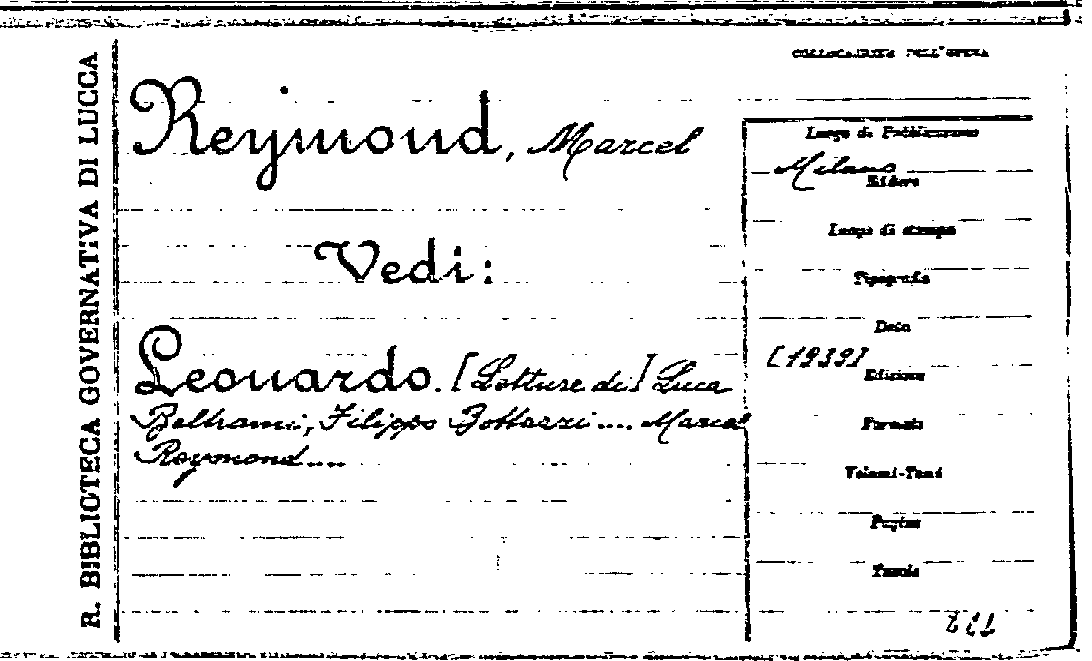 R. BIBLIOTECA GOVERNATIVA DI LUCCA
COLLOCAZIONE DELL'OPERA
Reymond, Marcel
Vedi:
Leonardo. [Letture di] Luca
Beltrami, Filippo Bottazzi .... Marcel
Reymond ....
Luogo di Pubblicazione
Milano
Editore
Luogo di stampa
Tipografia
Data
[1939]
Edizione
Formato
Volumi-Tomi
Pagine
Tavole